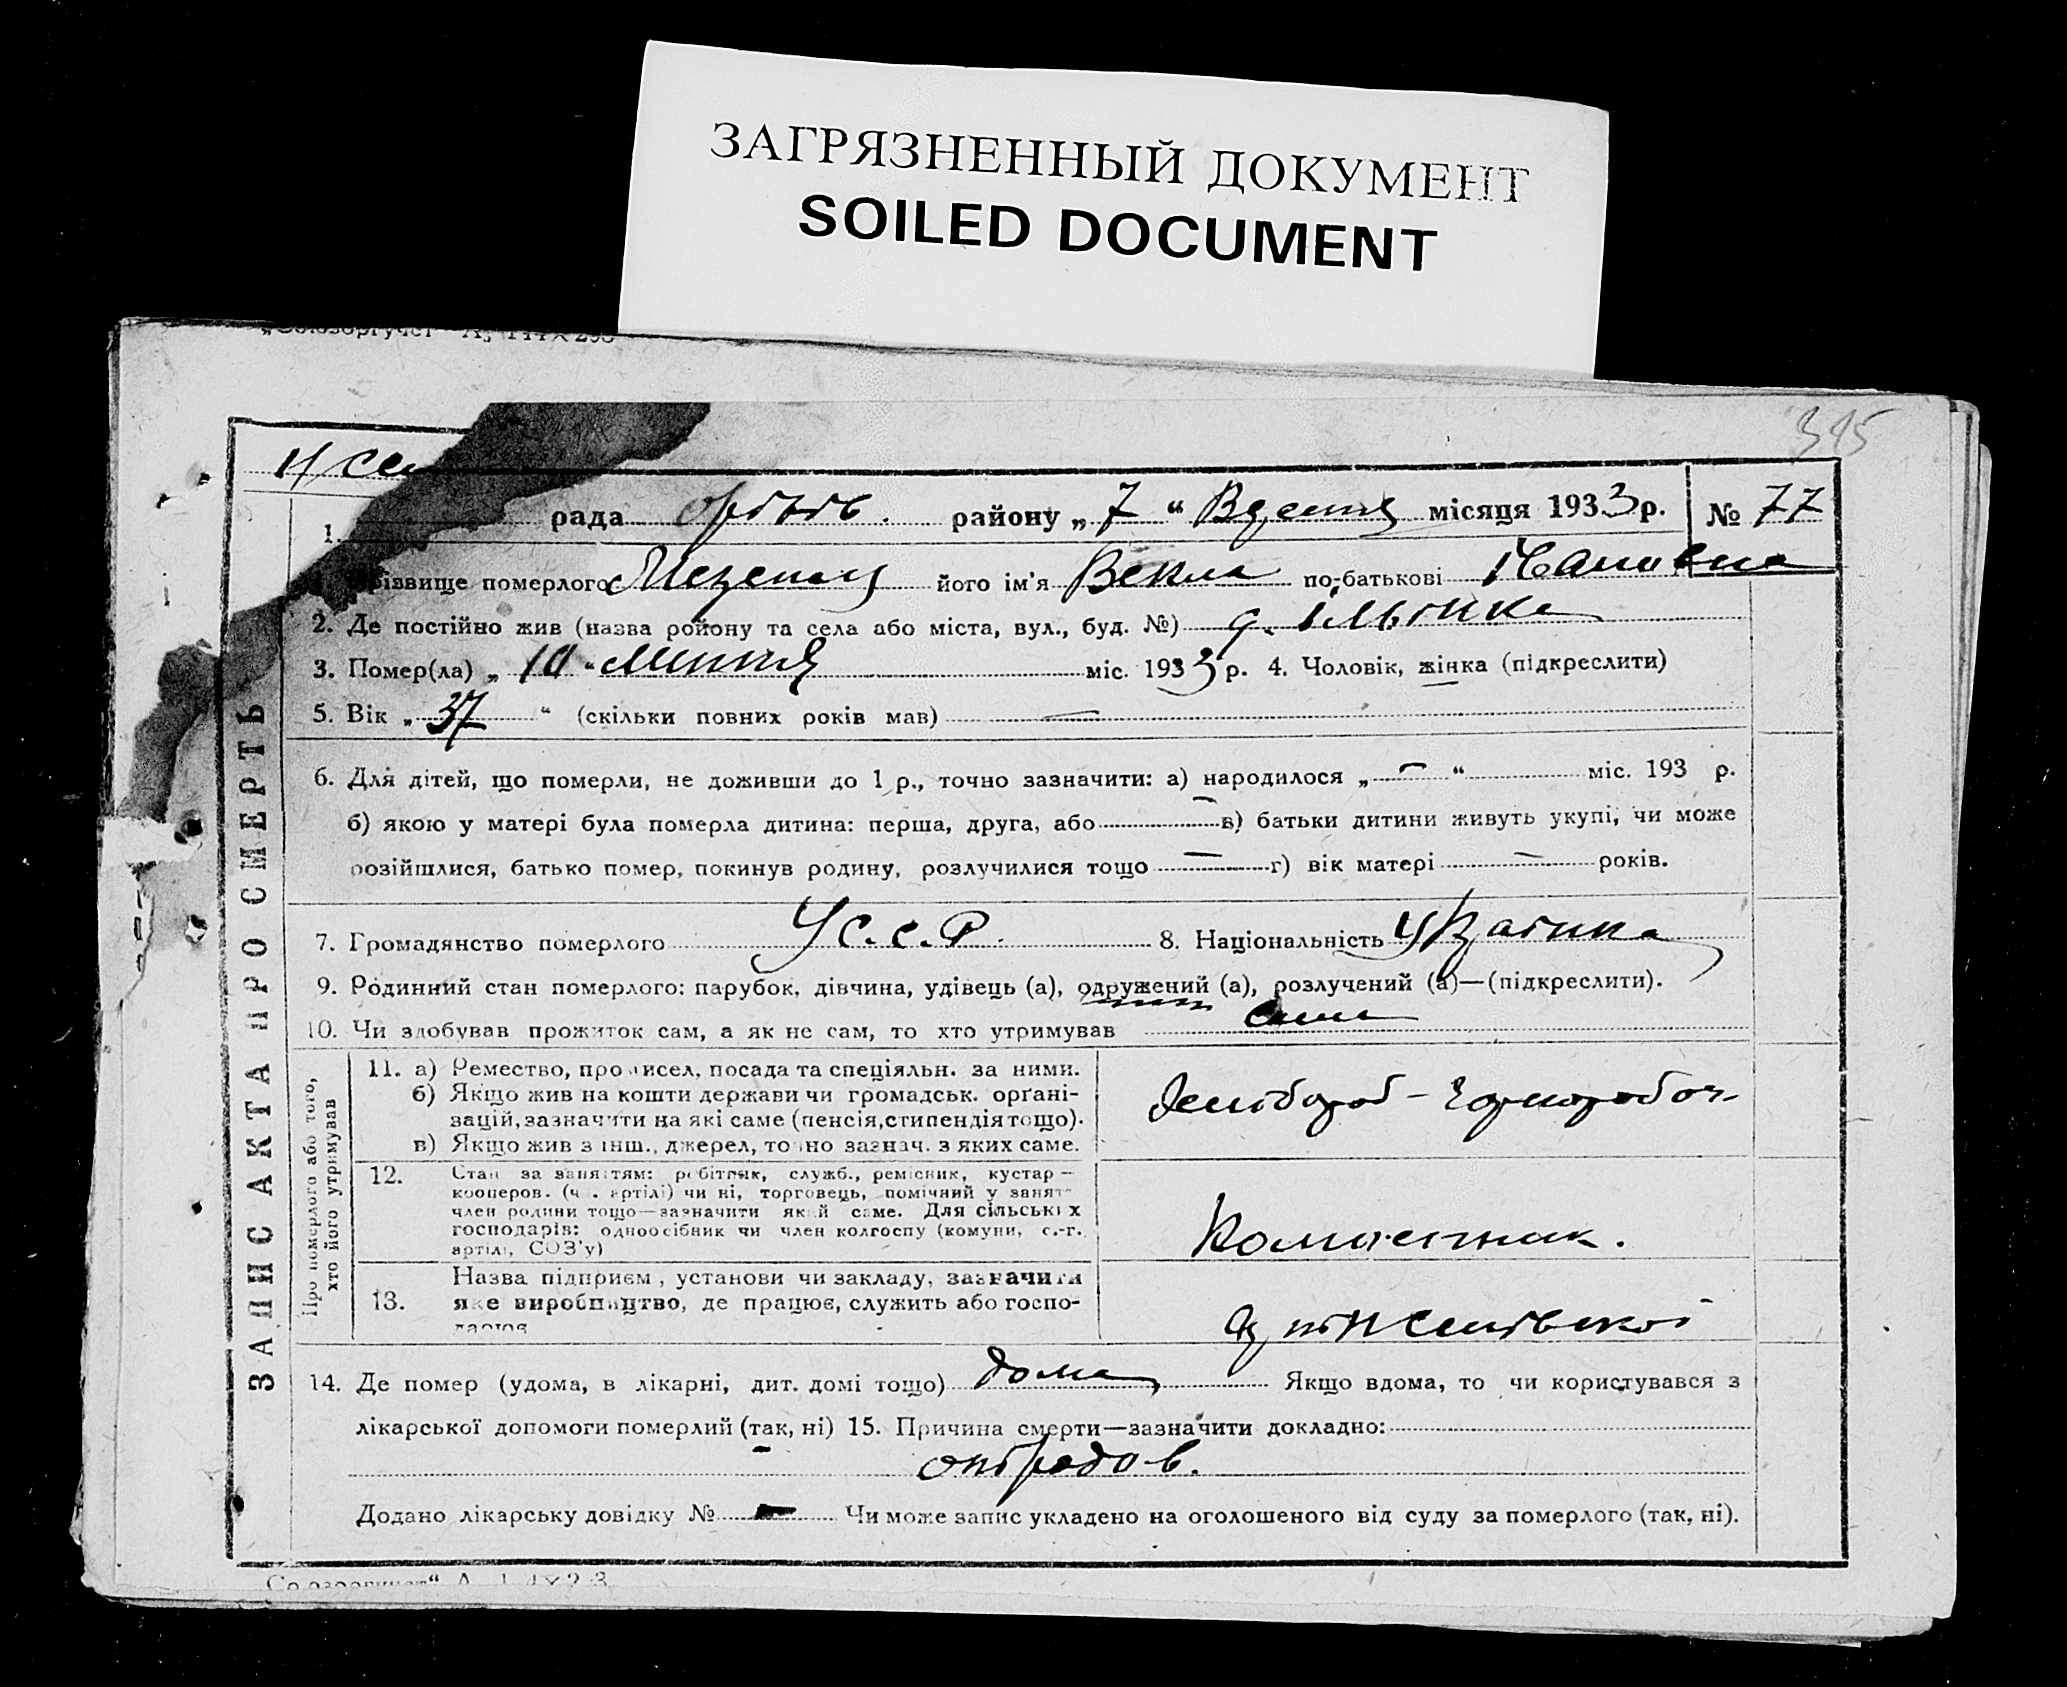 ЗАГРЯЗНЕННЫЙ ДОКУМЕНТ
SOILED DOCUMENT
315
рада району „ 7 “ місяця 1933 р. № 77
1.
прізвище померлого його ім'я Векла по-батькові
2. Де постійно жив (назва ройону та села або міста, вул., буд. №)
3. Помер(ла) „ 10 “ міс. 1933 р. 4. Чоловік, жінка (підкреслити)
5. Вік „ 37 “ (скільки повних років мав) —
6. Для дітей, що померли, не доживши до 1 р., точно зазначити: а) народилося „ — “ міс. 193 р.
б) якою у матері була померла дитина: перша, друга, або — в) батьки дитини живуть укупі, чи може
розійшлися, батько помер, покинув родину, розлучилися тощо — г) вік матері — років.
7. Громадянство померлого У С.С.Р. 8. Національність Українка
9. Родинний стан померлого: парубок, дівчина, удівець (а), одружений (а), розлучений (а)—(підкреслити).
10. Чи здобував прожиток сам, а як не сам, то хто утримував сама
ЗАПИС АКТА ПРО СМЕРТЬ
Про померлого або того, хто його утримував
11. а) Ремество, промисел, посада та спеціяльн. за ними.
б) Якщо жив на кошти держави чи громадськ. орґані-
зацій, зазначити на які саме (пенсія, стипендія тощо).
в) Якщо жив з інш., джерел, точно зазнач. з яких саме.
12. Стан за заняттям: робітник, служб., ремісник, кустар —
кооперов. (чл. артілі) чи ні, торговець, помічний у занят-
член родини тощо—зазначити який саме. Для сільських
господарів: одноосібник чи член колгоспу (комуни, с.-г.
артілі, СОЗ'у)
13. Назва підприєм, установи чи закладу, зазначити
яке виробництво, де працює, служить або госпо-
дарює
14. Де помер (удома, в лікарні, дит. домі тощо) дома Якщо вдома, то чи користувався з
лікарської допомоги померлий (так, ні) 15. Причина смерти—зазначити докладно:
Додано лікарську довідку № — Чи може запис укладено на оголошеного від суду за померлого (так, ні).